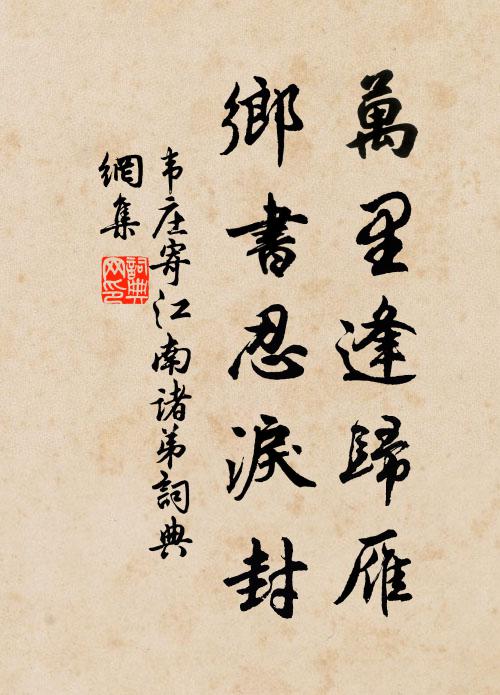 萬里逢歸雁
鄉書忍淚封
韦庄寄江南诸弟詞典
網集
詞典
网印